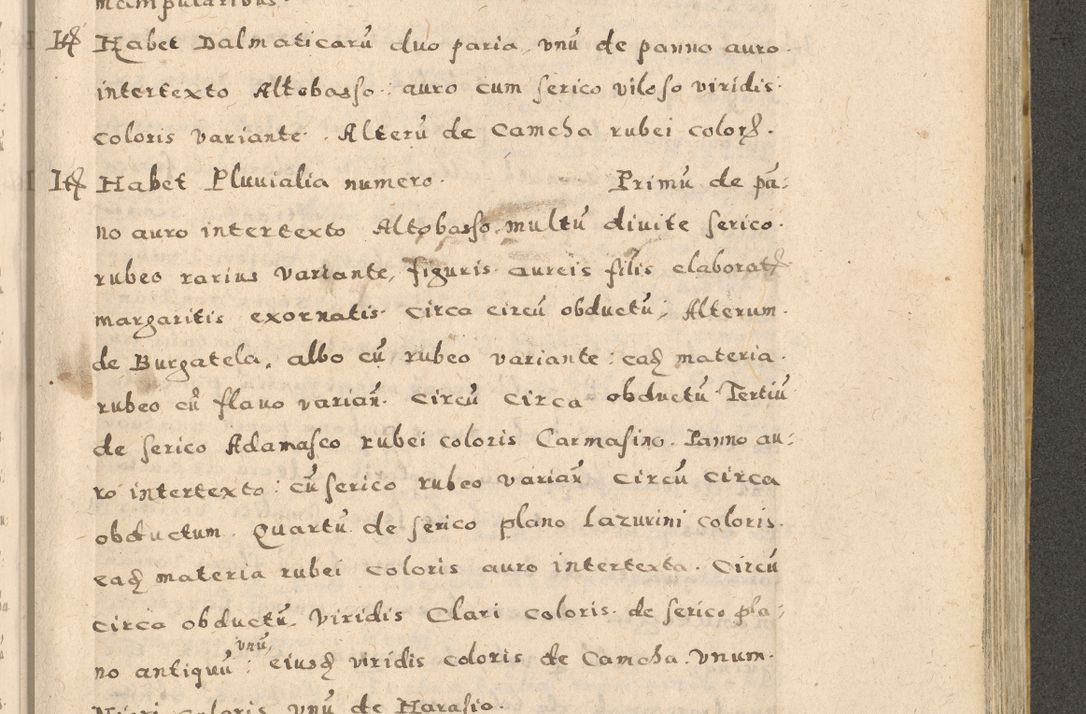 manipularibus.
Itꝫ Habet Dalmaticarū duo paria, vnū de panno auro.
intertexto Altobasso: auro cum serico viloso viridis.
coloris variante. Alterū de Camcha rubei colorꝫ.
Itꝫ Habet Pluuialia numero. Primū de pā:
no auro intertexto Altobasso, multū diuite serico.
rubeo rarius variante, figuris aureis filis elaboratꝫ
margaritis exornatis. Circa circū obductū, Alterum.
de Burgatela, albo cū rubeo variante: eaꝫ materia.
rubeo cū flauo varian̄. circū circa obductū. Tertiū
de serico Adamasco rubei coloris Carmasino. Panno au:
ro intertexto: cū serico rubeo varian̄ circū circa
obductum. Quartū de serico plano lazurini coloris.
eaꝫ materia rubei coloris auro intertexta. Circū
circa obductū. Viridis Clari coloris. de serico pla:
no antiquū: vnū, eiusꝫ viridis coloris de Camcha. Vnum.
Nigri coloris vnū de Harasio.